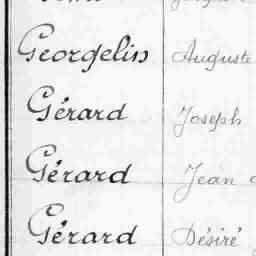 Georgelin Auguste
Gérard Joseph
Gérard Jean
Gérard Désiré